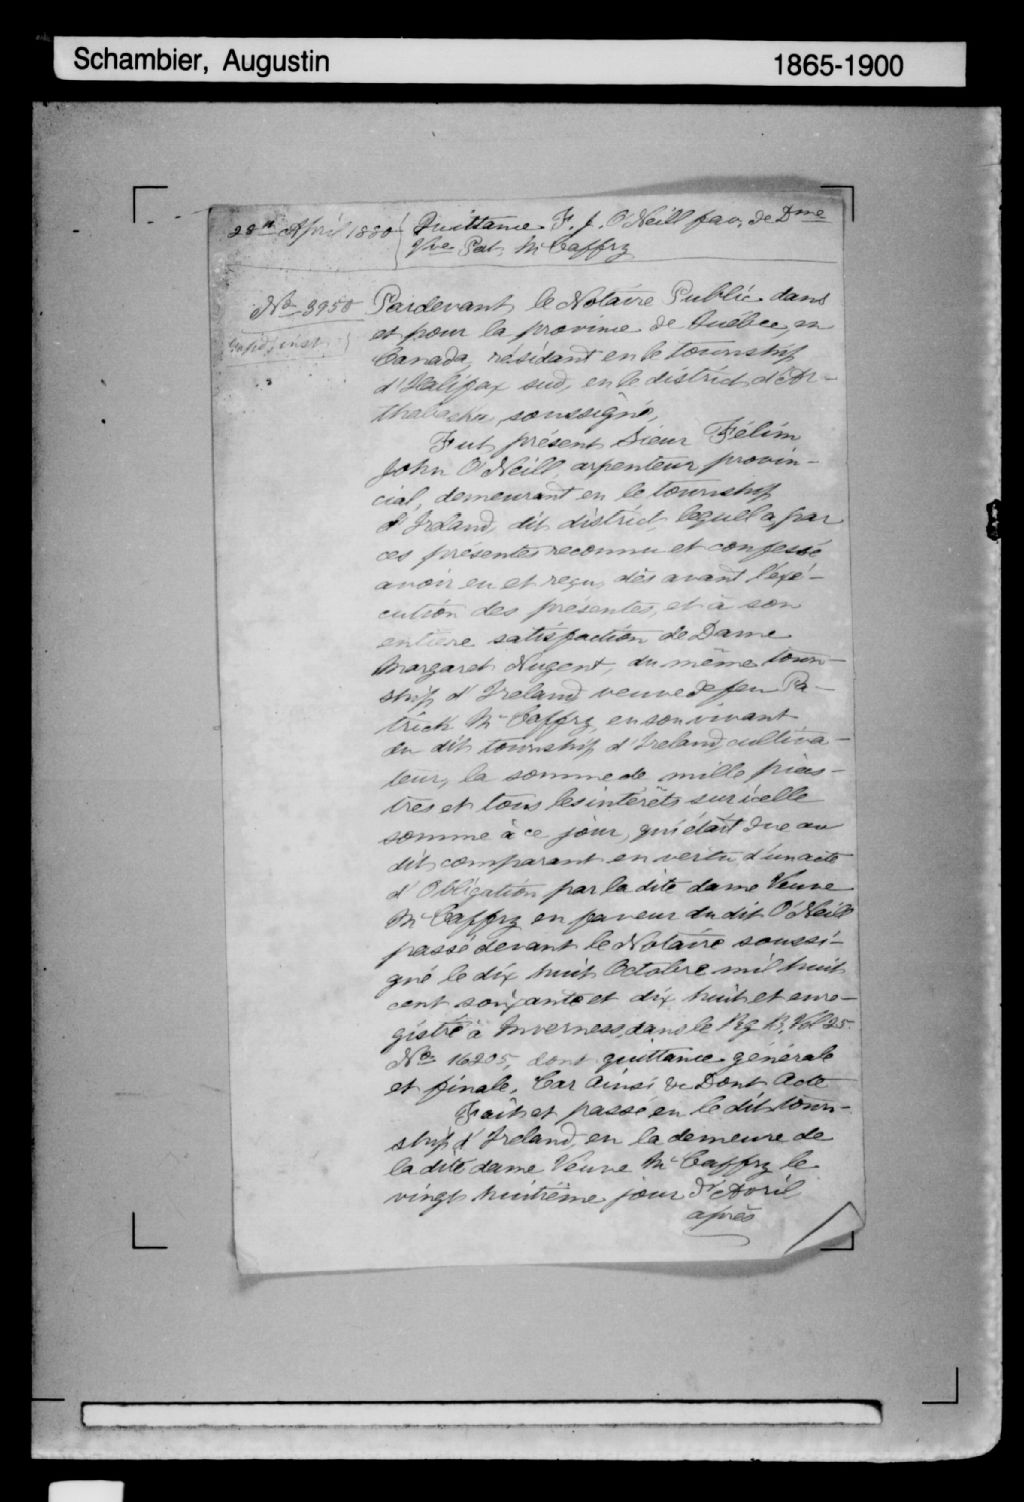 Schambier, Augustin 1865-1900
28th April 1880 Quittance F. J. O'Neill fav. de Dme
Vve Pat. McCaffry
No 3950 Pardevant le Notaire Public dans
et pour la province de Québec, en
Canada, résidant en le township
d'Halifax sud, en le district d'Ar-
thabaska, soussigné,
Fut présent Sieur Félim
John O'Neill, arpenteur provin-
cial, demeurant en le township
d'Ireland, dit district, lequel a par
ces présentes reconnu et confessé
avoir eu et reçu, dès avant l'exé-
cution des présentes, et à son
entière satisfaction de Dame
Margaret Nugent, du même town-
ship d'Ireland veuve de feu Pa-
trick McCaffry, en son vivant
du dit township d'Ireland, cultiva-
teur, la somme de mille pias-
tres et tous les intérêts sur icelle
somme à ce jour, qui était due au
dit comparant en vertu d'un acte
d'Obligation par la dite dame Veuve
McCaffry en faveur du dit O'Neill
passé devant le Notaire soussi-
gné le dix huit Octobre mil huit
cent soixante et dix huit et enre-
gistré à Inverness, dans le Reg B, Vol 25.
No 16205, dont quittance générale
et finale. Car Ainsi &c Dont Acte
Fait et passé en le dit town-
ship d'Ireland, en la demeure de
la dite dame Veuve McCaffry le
vingt huitième jour d'Avril
après